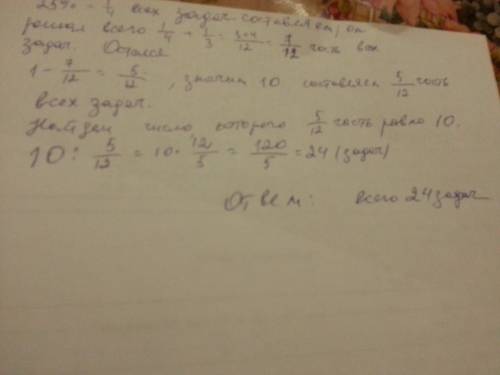 25% = 1/4 всех задач составляет, он
решал всего 1/4 + 1/3 = 3+4/12 = 7/12 часть всех
задач. Остался
1 - 7/12 = 5/12, значит 10 составляет 5/12 часть
всех задач.
Найдем число которого 5/12 часть равно 10.
10 : 5/12 = 10 · 12/5 = 120/5 = 24 (задач)
Ответ: всего 24 задач